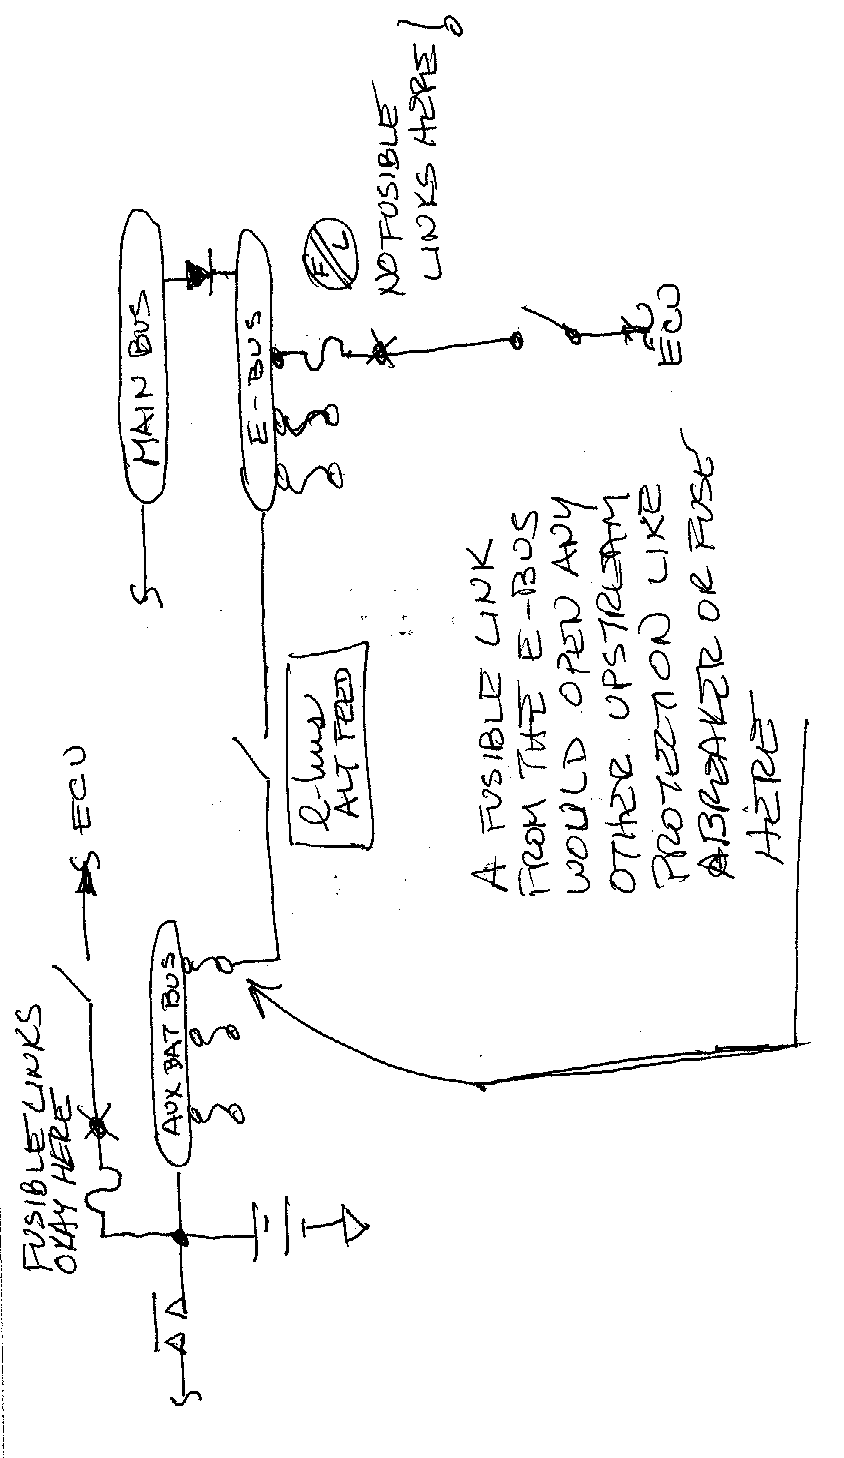 FUSIBLE LINKS
OKAY HERE
ECU
AUX BAT BUS
e-bus
ALT FEED
MAIN BUS
E-BUS
F/L
NO FUSIBLE
LINKS HERE!
ECU
A FUSIBLE LINK
FROM THE E-BUS
WOULD OPEN ANY
OTHER UPSTREAM
PROTECTION LIKE
A BREAKER OR FUSE
HERE